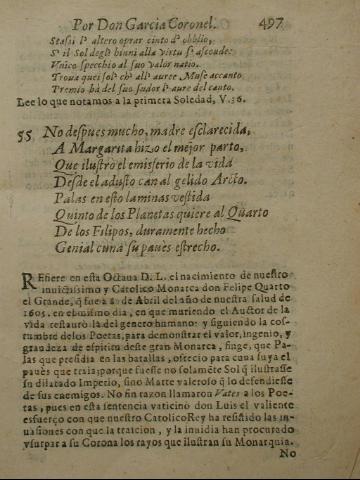 Por Don Garcia Coronel. 497
Stassi l'altero oprar cinto d'obblio,
S'il Sol degl'hinni alla virtu s'ascoude:
Vnico specchio al suo valor natio.
Troua quei sol ch'all'auree Muse accanto
Premio há del suo sudor l'aure del canto.
Lee lo que notamos a la primera Soledad, V.36.
55 No despues mucho, madre esclarecida,
A Margarita hizo el mejor parto,
Que ilustrò el emisferio de la vida
Desde el adusto can al gelido Arcto.
Palas en esto laminas vestida
Quinto de los Planetas quiere al Quarto
De los Filipos, duramente hecho
Genial cuna su paues estrecho.
REfiere en esta Octaua D. L. el nacimiento de nuestro
inuictissimo y Catolico Monarca don Felipe Quarto
el Grande, q̃ fue a 8 de Abril del año de nuestra salud de
1605. en el mismo dia, en que muriendo el Auctor de la
vida restaurò la del genero humano: y siguiendo la cos-
tumbre de los Poetas, para demonstrar el valor, ingenio, y
grandeza de espiritu deste gran Monarca, finge, que Pa-
las que presidia en las batallas, ofrecio para cuna suya el
paues que traia; porque fuesse no solamẽte Sol q̃ ilustrasse
su dilatado Imperio, sino Marte valeroso q̃ lo defendiesse
de sus enemigos. No sin razon llamaron Vates a los Poe-
tas, pues en esta sentencia vaticinò don Luis el valiente
esfuerço con que nuestro Catolico Rey ha resistido las in-
uasiones con que la traicion, y la inuidia han procurado
vsurpar a su Corona los rayos que ilustran su Monarquia.
No